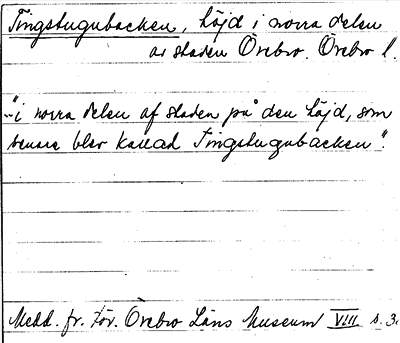 Tingstugubacken, höjd i norra delen
av staden Örebro. Örebro l.
"- i norra delen af staden på den höjd, som
senare blev kallad Tingstugubacken".
Medd. fr. För. Örebro Läns Museum VIII s. 3.